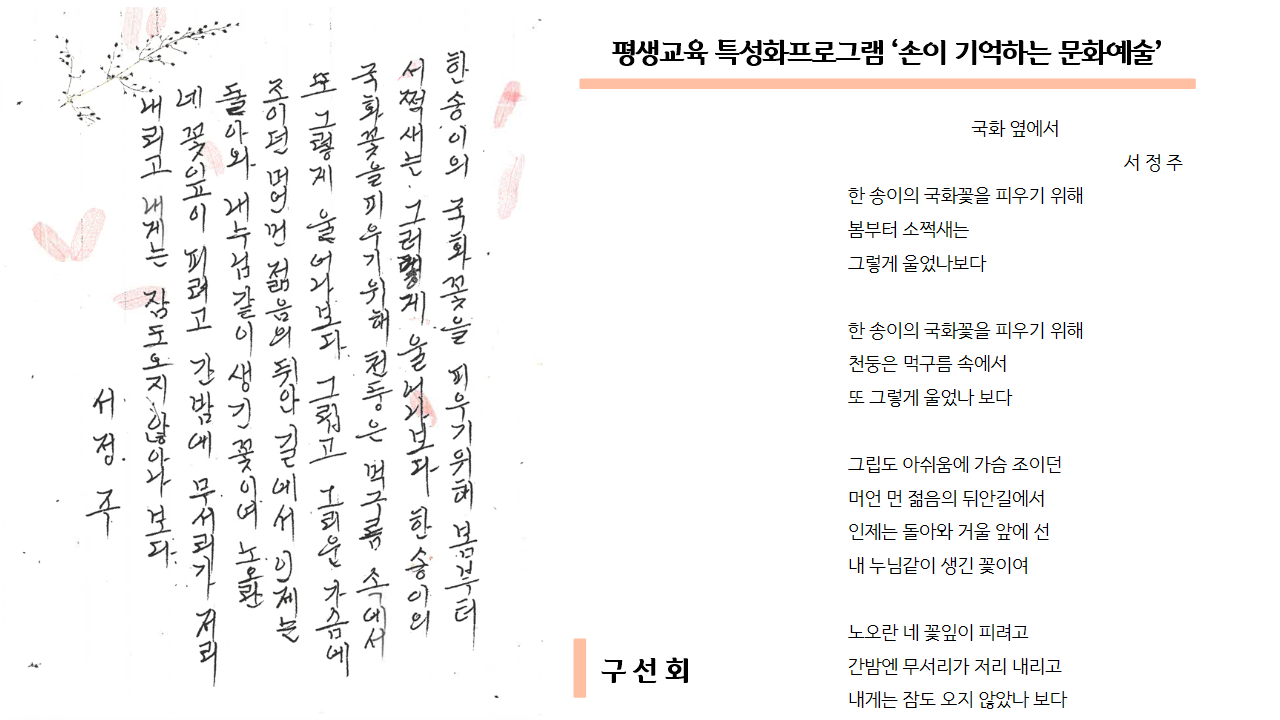 한송이의 국화꽃을 피우기위해 봄부터
서쩍새는 그러렇게 울어나보다 한송이의
국화꽃을피우기위해 천둥은 먹구름 속에서
또 그렇게 울어나보다 그립고 그리운 가슴에
조이던 머언먼 젊음의 뒤안길에서 이제는
돌아와 내누님같이 생긴 꽃이여 노오란
네 꽃잎이 피려고 간밤에 무서리가 저리
내리고 내게는 잠도오지않아나 보다
서정주
평생교육 특성화프로그램 ‘손이 기억하는 문화예술’
국화 옆에서
서 정 주
한 송이의 국화꽃을 피우기 위해
봄부터 소쩍새는
그렇게 울었나보다
한 송이의 국화꽃을 피우기 위해
천둥은 먹구름 속에서
또 그렇게 울었나 보다
그립도 아쉬움에 가슴 조이던
머언 먼 젊음의 뒤안길에서
인제는 돌아와 거울 앞에 선
내 누님같이 생긴 꽃이여
노오란 네 꽃잎이 피려고
간밤엔 무서리가 저리 내리고
내게는 잠도 오지 않았나 보다
구 선 회